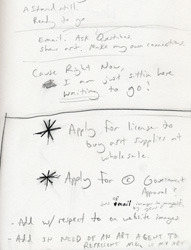 A Stand still.
Ready to go
Email. Ask Questions
Share art. Make my own connections
Cause Right Now,
I am just sittin here
waiting to go!
* Apply for license to
buy art supplies at
wholesale.
* Apply for © Government
Approval?
email
- Add w/ respect to on website images
- Add IN NEED OF AN ART AGENT TO
REPRESENT MEN